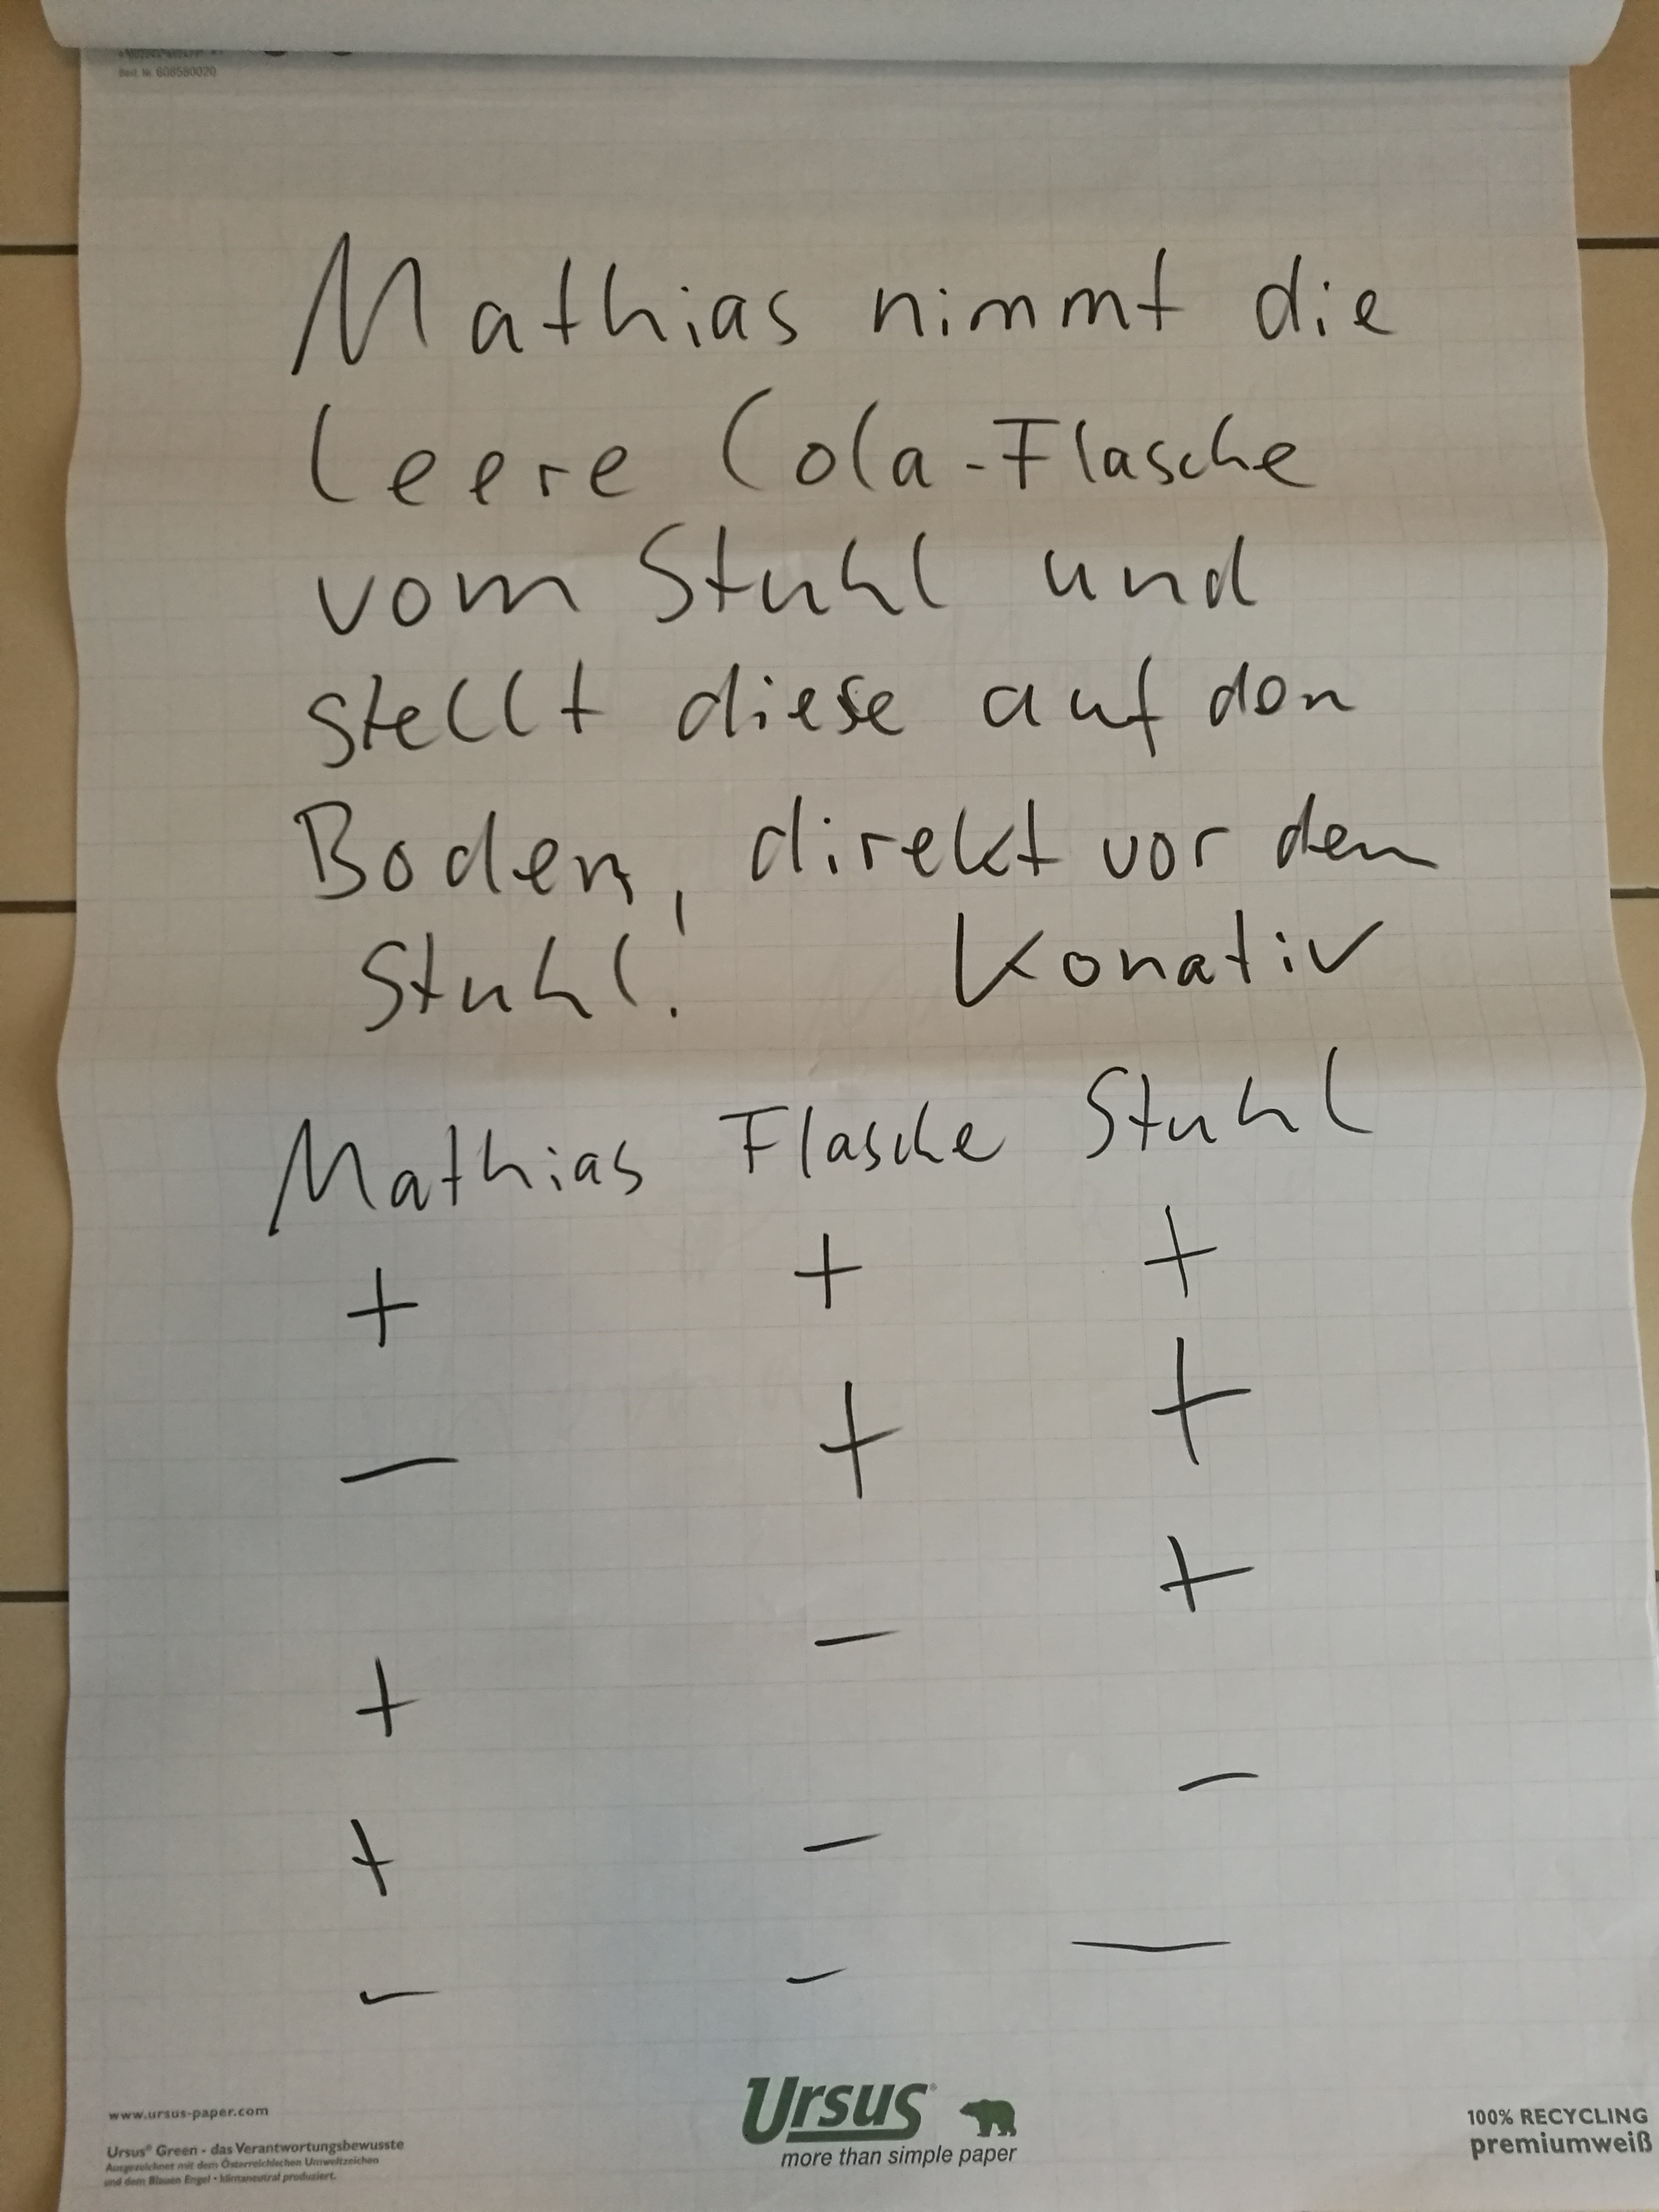 Best. Nr. 608580020
Mathias nimmt die
leere Cola-Flasche
vom Stuhl und
stellt diese auf den
Boden, direkt vor den
Stuhl! Konativ
Mathias Flasche Stuhl
+ + +
− + +
+ − +
+ − −
− − −
www.ursus-paper.com
Ursus® Green - das Verantwortungsbewusste
Ausgezeichnet mit dem Österreichischen Umweltzeichen
und dem Blauen Engel • klimaneutral produziert.
Ursus®
more than simple paper
100% RECYCLING
premiumweiß